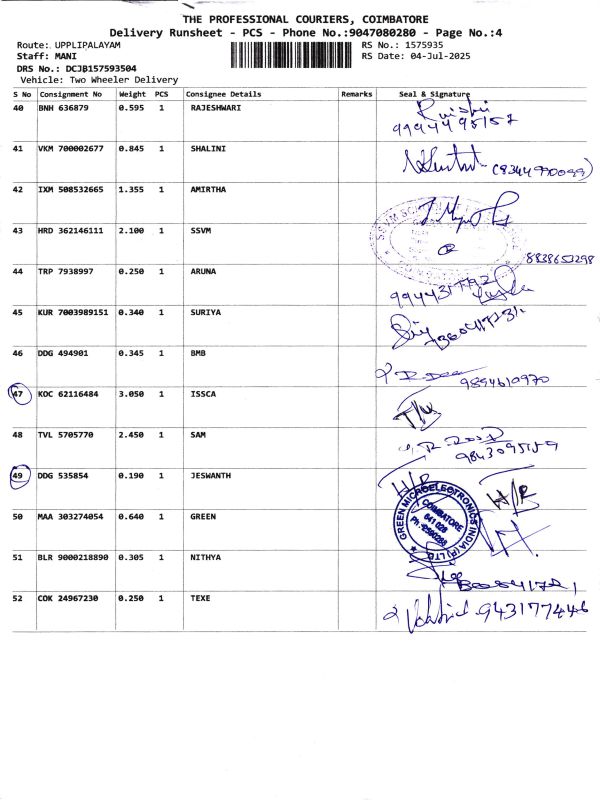 THE PROFESSIONAL COURIERS, COIMBATORE
Delivery Runsheet - PCS - Phone No.:9047080280 - Page No.:4
Route: UPPLIPALAYAM RS No.: 1575935
Staff: MANI RS Date: 04-Jul-2025
DRS No.: DCJB157593504
Vehicle: Two Wheeler Delivery
S No Consignment No Weight PCS Consignee Details Remarks Seal & Signature
40 BNH 636879 0.595 1 RAJESHWARI
9994495157
41 VKM 700002677 0.845 1 SHALINI
42 IXM 508532665 1.355 1 AMIRTHA
43 HRD 362146111 2.100 1 SSVM
8838653298
44 TRP 7938997 0.250 1 ARUNA
45 KUR 7003989151 0.340 1 SURIYA
46 DDG 494901 0.345 1 BMB
9894610970
47 KOC 62116484 3.050 1 ISSCA
48 TVL 5705770 2.450 1 SAM
9843095159
49 DDG 535854 0.190 1 JESWANTH
H/R
50 MAA 303274054 0.640 1 GREEN
GREEN MICROELECTRONICS INDIA (P) LTD.
COIMBATORE
641 028
51 BLR 9000218890 0.305 1 NITHYA
52 COK 24967230 0.250 1 TEXE